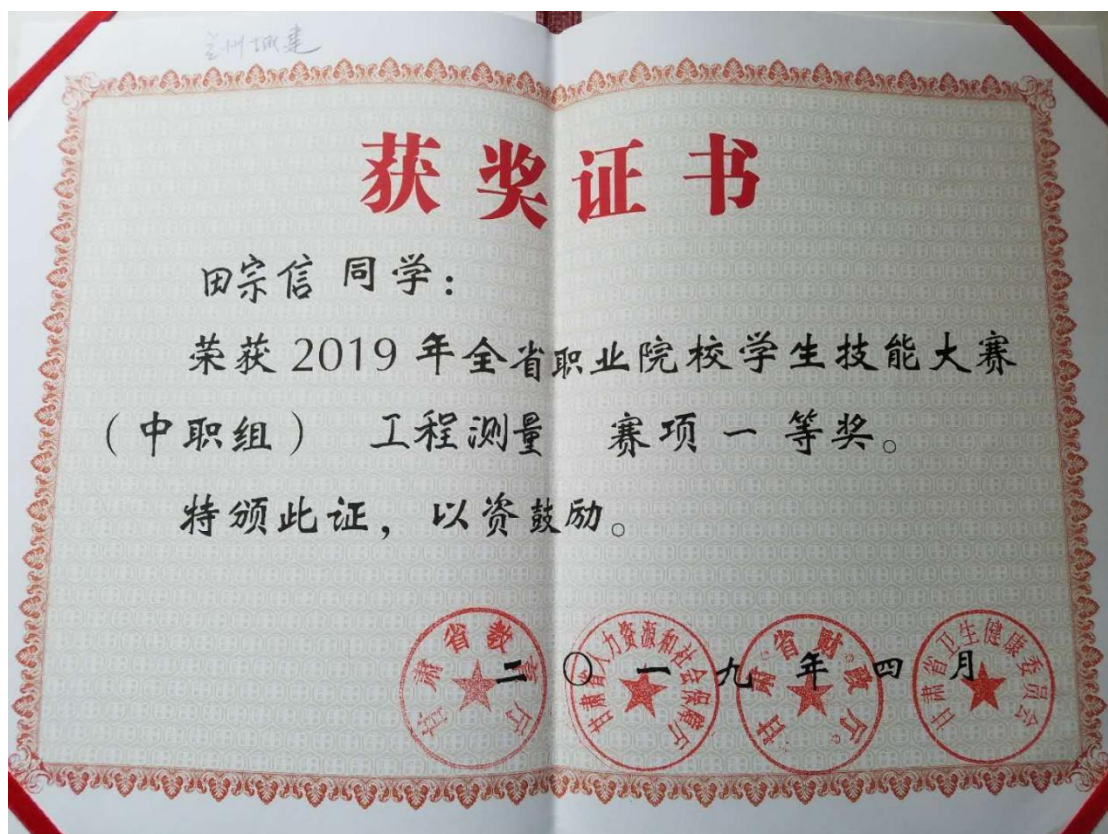 兰州城建
获奖证书
田宗信 同学：
荣获 2019 年全省职业院校学生技能大赛
（中职组） 工程测量 赛项 一 等奖。
特颁此证，以资鼓励。
二〇一九年四月
甘肃省教育厅
甘肃省人力资源和社会保障厅
甘肃省财政厅
甘肃省卫生健康委员会